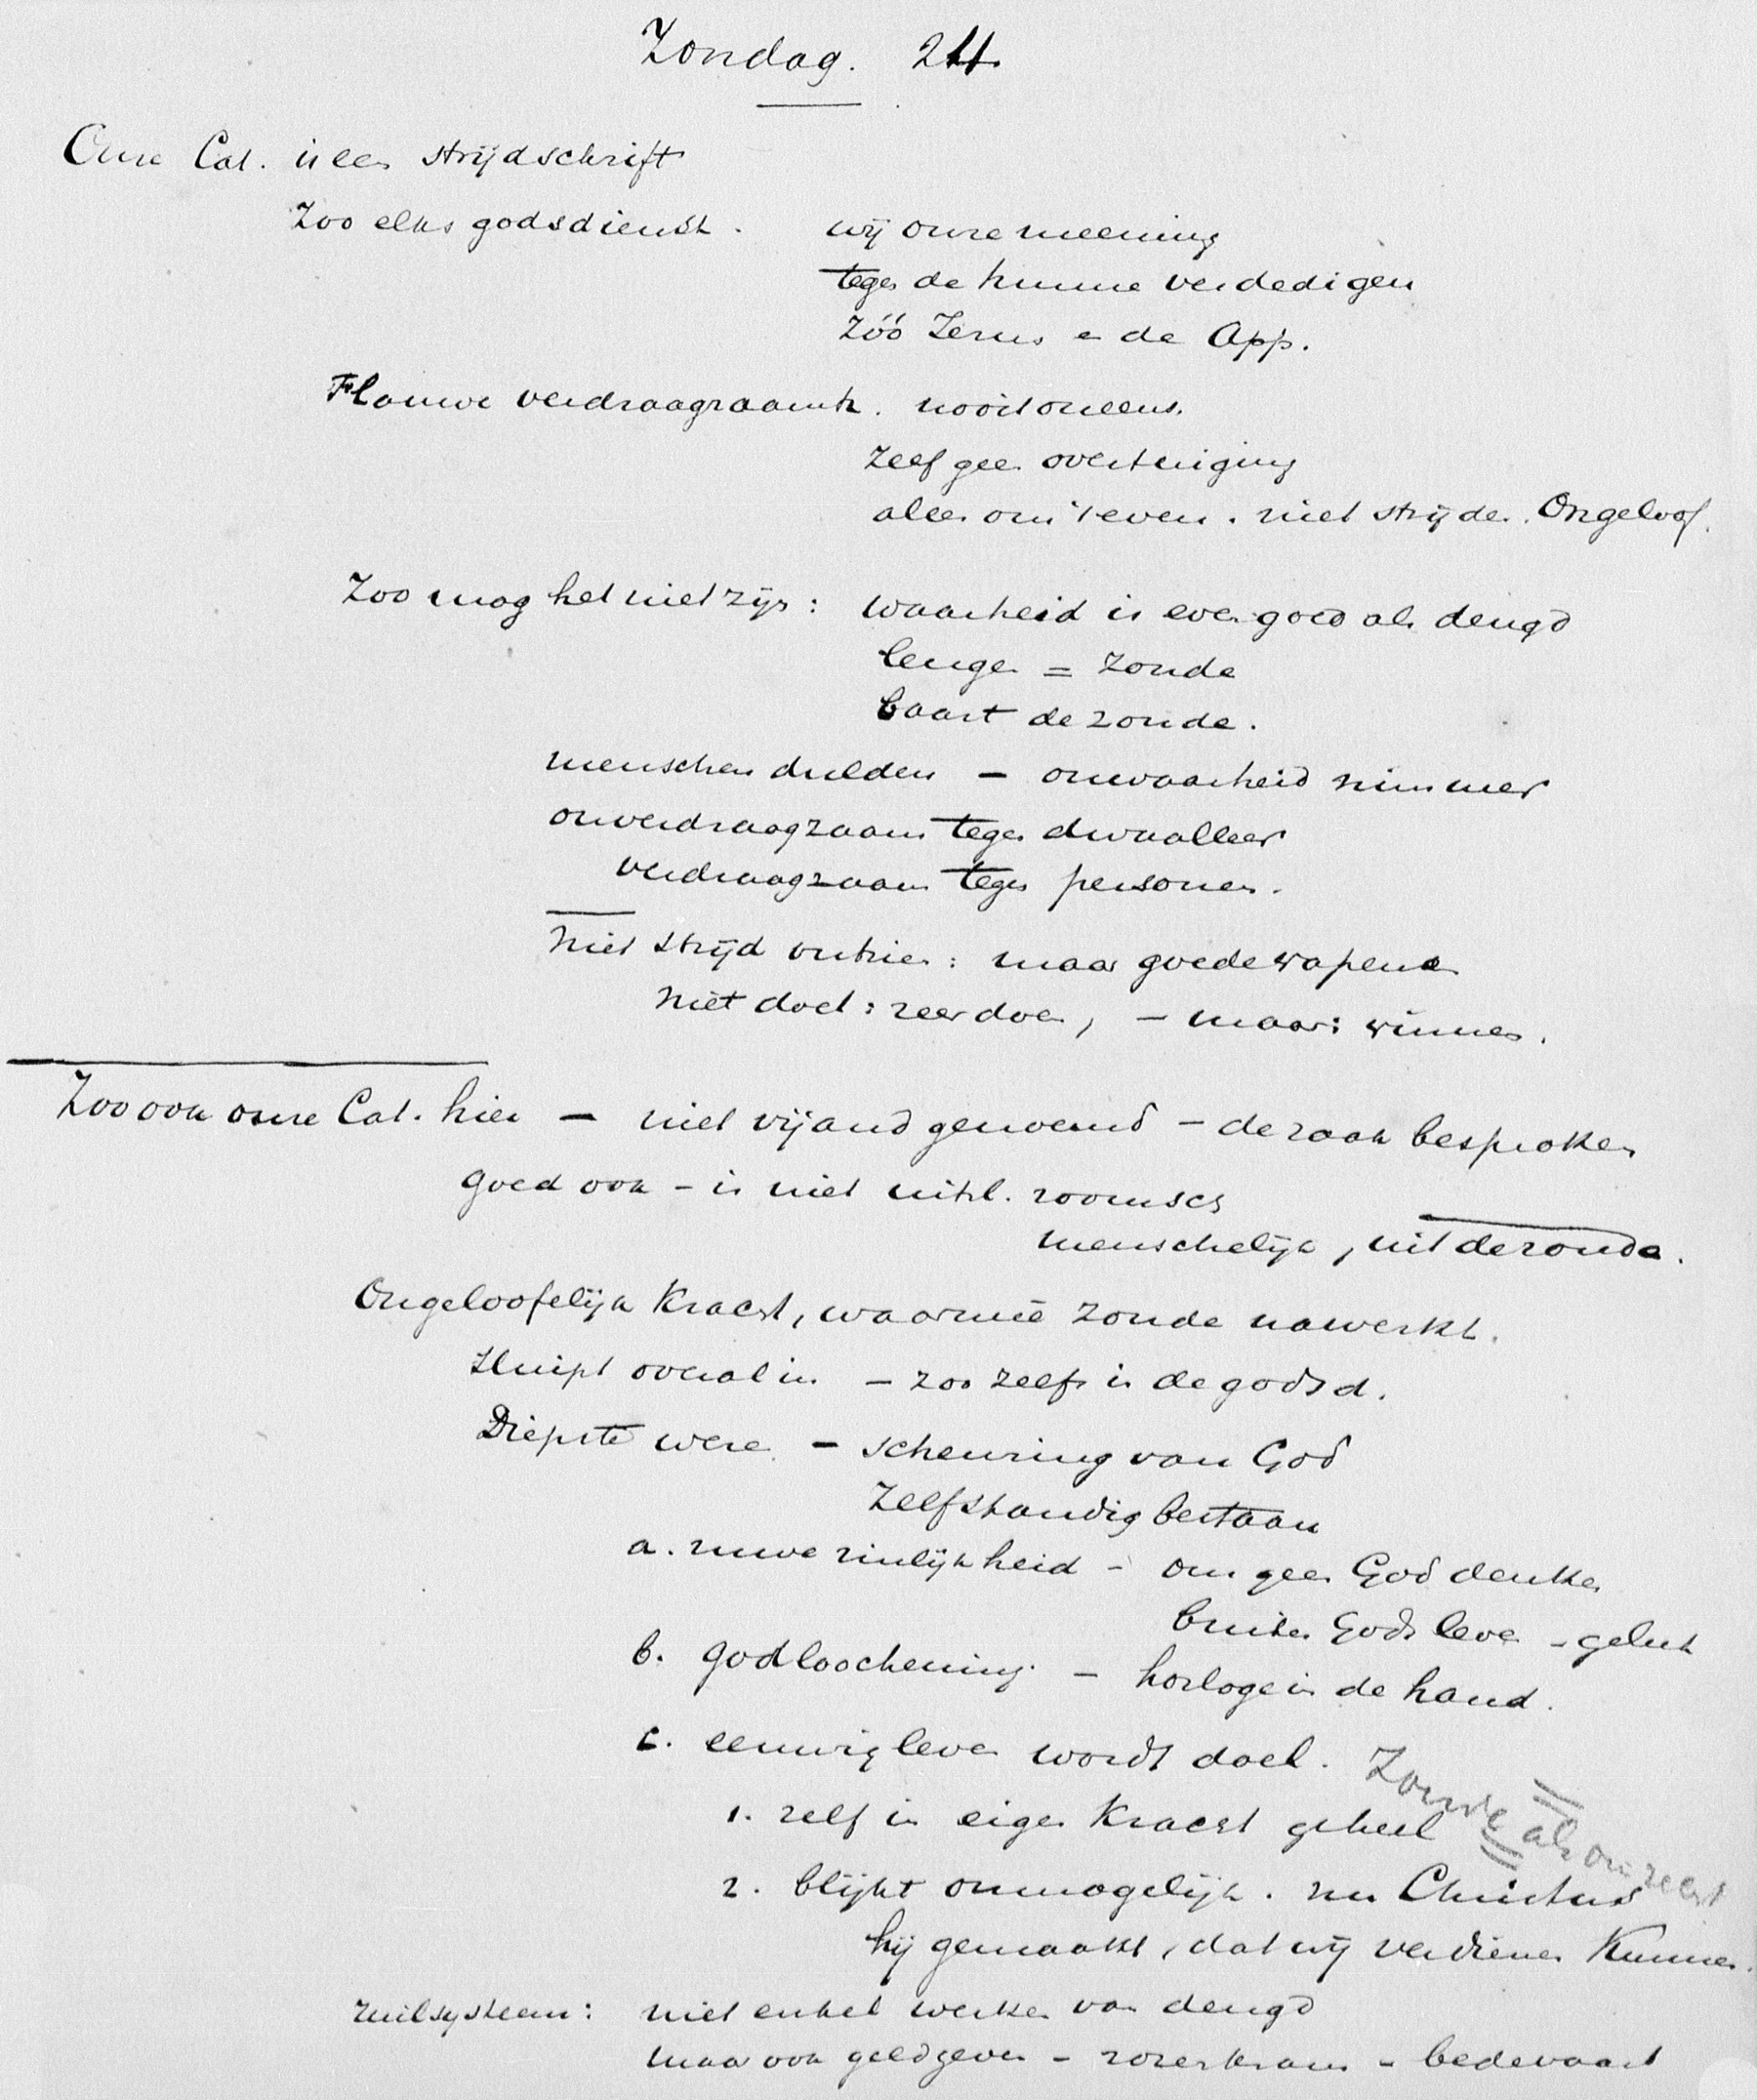 Zondag. 24.
Onze Cat. is een strijdschrift
Zoo elks godsdienst. wij onze meening
tegen de hunne verdedigen
zóó Jezus en de App.
Flauwe verdraagzaamh. nooit oneens.
zelf geen overtuiging
alles om 't even. niet strijden. Ongeloof.
Zoo mag het niet zijn: waarheid is even goed als deugd
leugen = zonde
baart de zonde.
menschen dulden - onwaarheid nimmer
onverdraagzaam tegen dwaalleer
verdraagzaam tegen personen.
Niet strijd ontzien: maar goede wapenen
Niet doel: zeer doen, - maar: winnen.
Zoo ook onze Cat. hier - niet vijand genoemd - de zaak besproken
goed ook - is niet uitsl. roomsch
menschelijk, uit de zonde.
Ongeloofelijk kracht, waarmeê zonde nawerkt.
Sluipt overal in - zoo zelfs in de godsd.
Diepste weze - scheuring van God
Zelfstandig bestaan
a. ruwe zinlijkheid - om geen God denken
buiten Gods leven - geluk
b. godloochening - horloge in de hand.
c. eeuwig leven wordt doel.
Zonde als onze
1. zelf in eigen kracht geheel
2. blijkt onmogelijk. nu Christus
hij gemaakt, dat wij verdienen kunnen.
ruilsysteem: niet enkel werken van deugd
maar ook geldgeven - rozenkrans - bedevaart